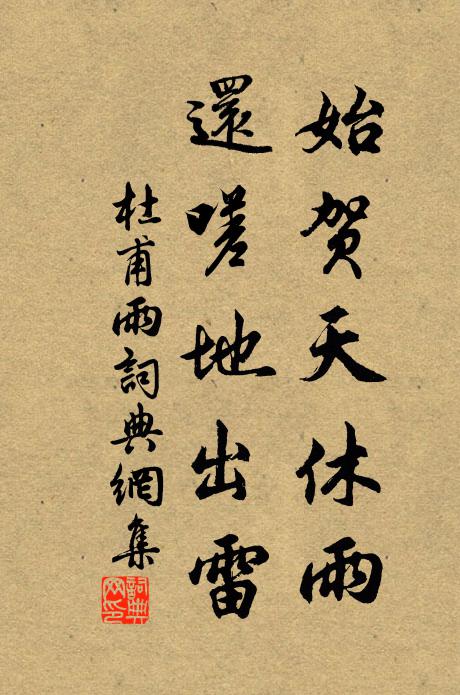 始贺天休雨
還嗟地出雷
杜甫雨詞典網集
詞典网印